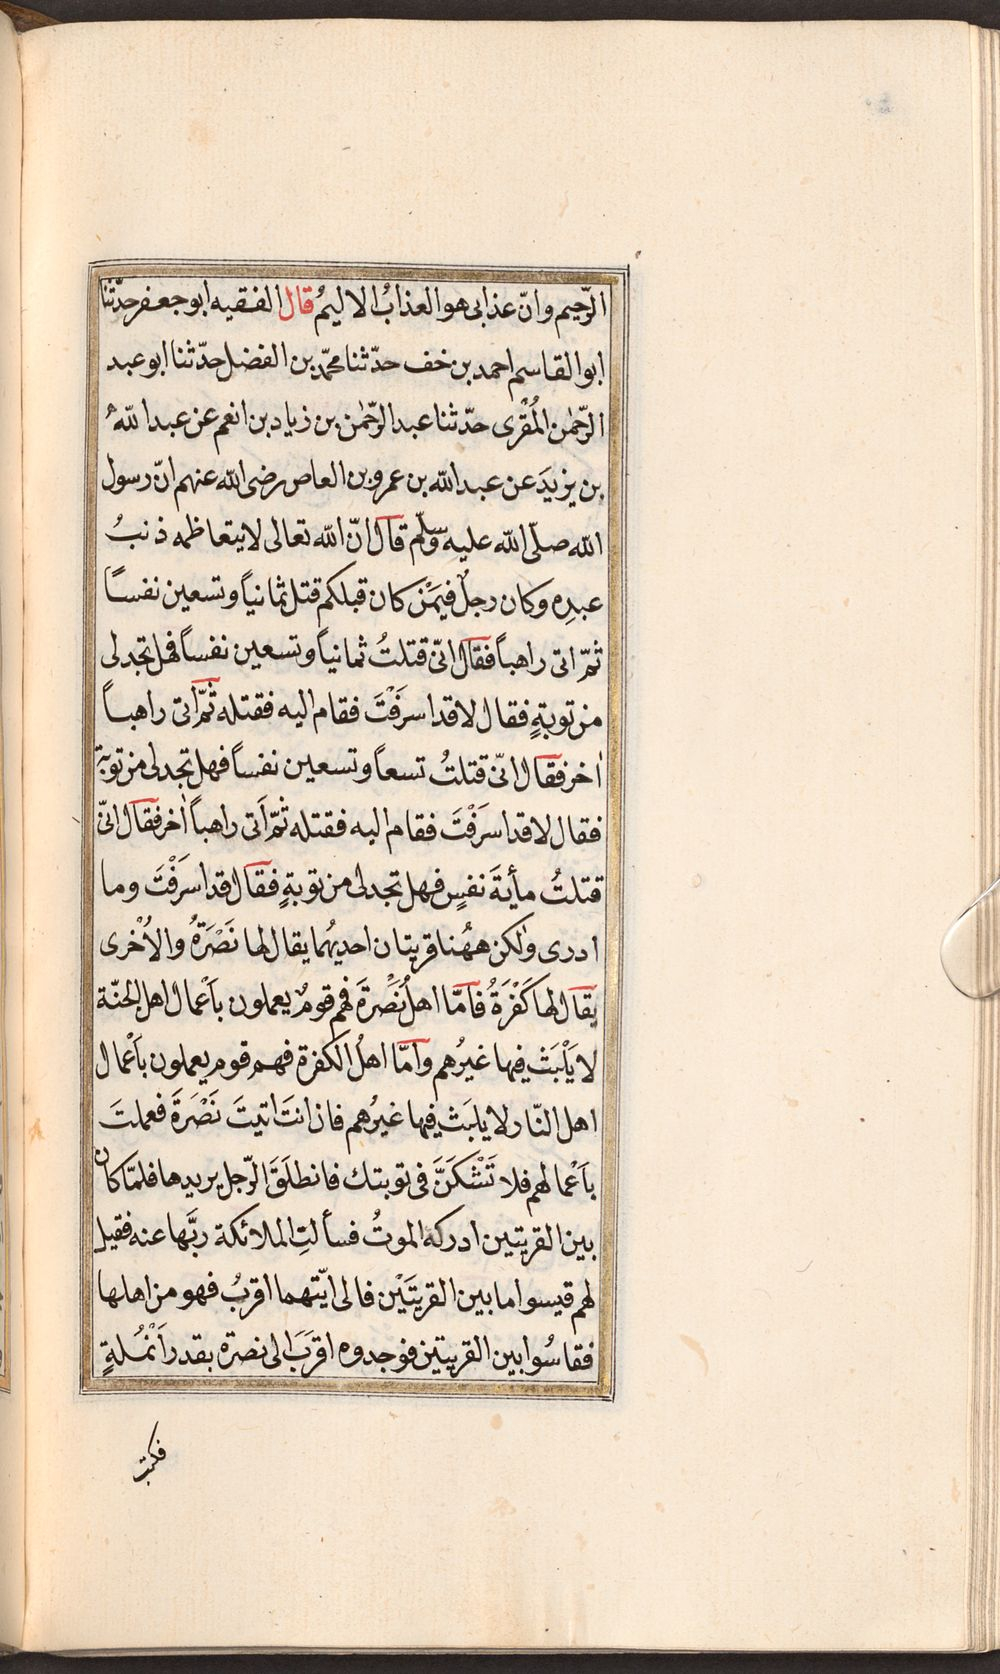 الرّحيم وانّ عذابى هو العذابُ الاليمُ قال الفقيه ابو جعفر حدّثنا
ابو القاسم احمد بن خف حدّثنا محمّد بن الفضل حدّثنا ابو عبد
الرّحمٰن المُقْرى حدّثنا عبد الرّحمٰن بن زياد بن انعم عن عبد اللّٰه
بن يزيدَ عن عبد اللّٰه بن عمرو بن العاص رضى اللّٰه عنهم انّ رسول
اللّٰه صلّى اللّٰه عليه وسلّم قال انّ اللّٰه تعالى لا يتعاظمه ذنبُ
عبدِه وكان رجلٌ فيمَنْ كان قبلكم قتل ثمانياً وتسعين نفساً
ثمّ اتى راهباً فقال انّى قتلتُ ثمانياً وتسعين نفساً فهل تجد لى
من توبةٍ فقال لا قد اسرَفْتَ فقام اليه فقتله ثمّ اتى راهباً
اٰخر فقال انّى قتلتُ تسعاً وتسعين نفساً فهل تجد لى من توبة
فقال لا قد اسرَفْتَ فقام اليه فقتله ثمّ أتى راهباً اٰخر فقال انّى
قتلتُ مأيةَ نفسٍ فهل تجد لى من توبةٍ فقال قد اسرَفْتَ وما
ادرى ولٰكن ههُنا قريتان احديهُما يقال لها نَصْرَةُ والاُخْرى
يقال لها كَفْرَةُ فامّا اهلُ نَصْرَةَ فهم قومٌ يعملون بأعْمال اهل الجنّة
لا يَلْبَث فيها غيرُهم وامّا اهلُ الكفرة فهم قوم يعملون بأعْمال
اهل النّار لا يلبَث فيها غيرُهم فان انتَ اتيتَ نَصْرَةَ فعملتَ
بأعْمالهم فلا تَشْكَنَّ فى توبتك فانطلَقَ الرّجل يريدها فلمّا كان
بين القريتين ادركه الموتُ فسألتِ الملائكة ربَّها عنه فقيل
لهم قيسوا ما بين القريتَيْن فالى ايّتهما اقربُ فهو من اهلها
فقاسُوا بين القريتين فوجدوه اقرَبَ الى نصرَة بقدر أنْمُلةٍ
فكتب